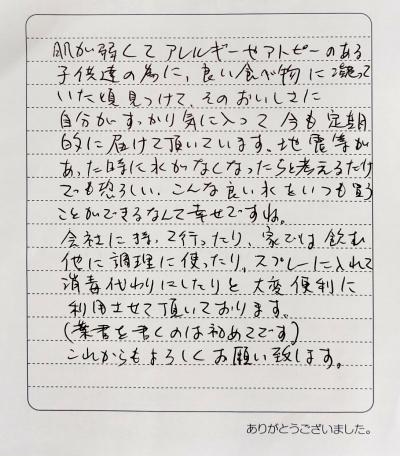 肌が弱くてアレルギーやアトピーのある
子供達の為に、良い食べ物に凝って
いた頃見つけて、そのおいしさに
自分がすっかり気に入って今も定期
的に届けて頂いています。地震等が
あった時に水がなくなったらと考えるだけ
でも恐ろしい、こんな良い水をいつも買う
ことができるなんて幸せですね。
会社に持って行ったり、家では飲む
他に調理に使ったり。スプレーに入れて
消毒代わりにしたりと大変便利に
利用させて頂いております。
(葉書を書くのは初めてです)
これからもよろしくお願い致します。
ありがとうございました。